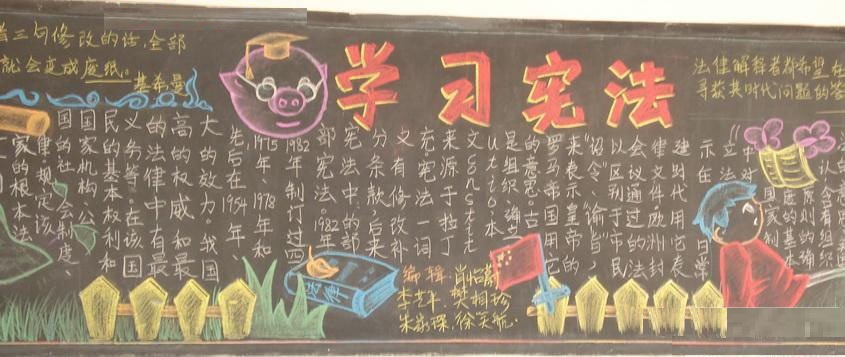 着三句修改的话,全部
就会变成废纸。
基希曼
学习宪法
法律解释者都希望在
寻获其时代问题的答
从含有组织
原则的确
度的基本
国家制
中对
立法
示在日常
建时代用它表
律文件欧洲封
会议通过的法
以区别于市民
“诏令”、“谕旨”,
来表示皇帝的
罗马帝国用它的
的意思。古
是组织、确立
utio,本
文constit
来源于拉丁
充宪法一词
又有修改补
分条款,后来
宪法中的部
部宪法。1982年
1982年制订过四
1975年、1978年和
先后在1954年、
大的效力。我国
高的权威和最
的法律中有最
义务等。在该国
民的基本权利和
国家机构、公
国的社会制度、
律。规定该
家的根本法
法律
编辑 肖怡
李 年.樊相珍
朱家琛.徐天航.